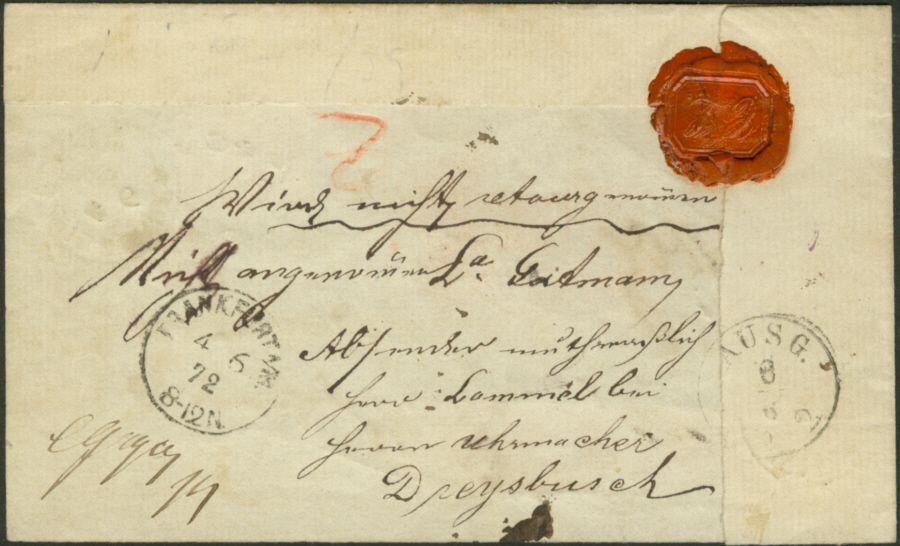 Wird nicht retourgenom̄en
Nicht angenom̄en La. Gutmann
FRANKFURT A/M.
4 6
72
8-12N.
AUSG.
Absender muthmaßlich
Herr Lommel bei
Herrn Uhrmacher
Dreysbusch